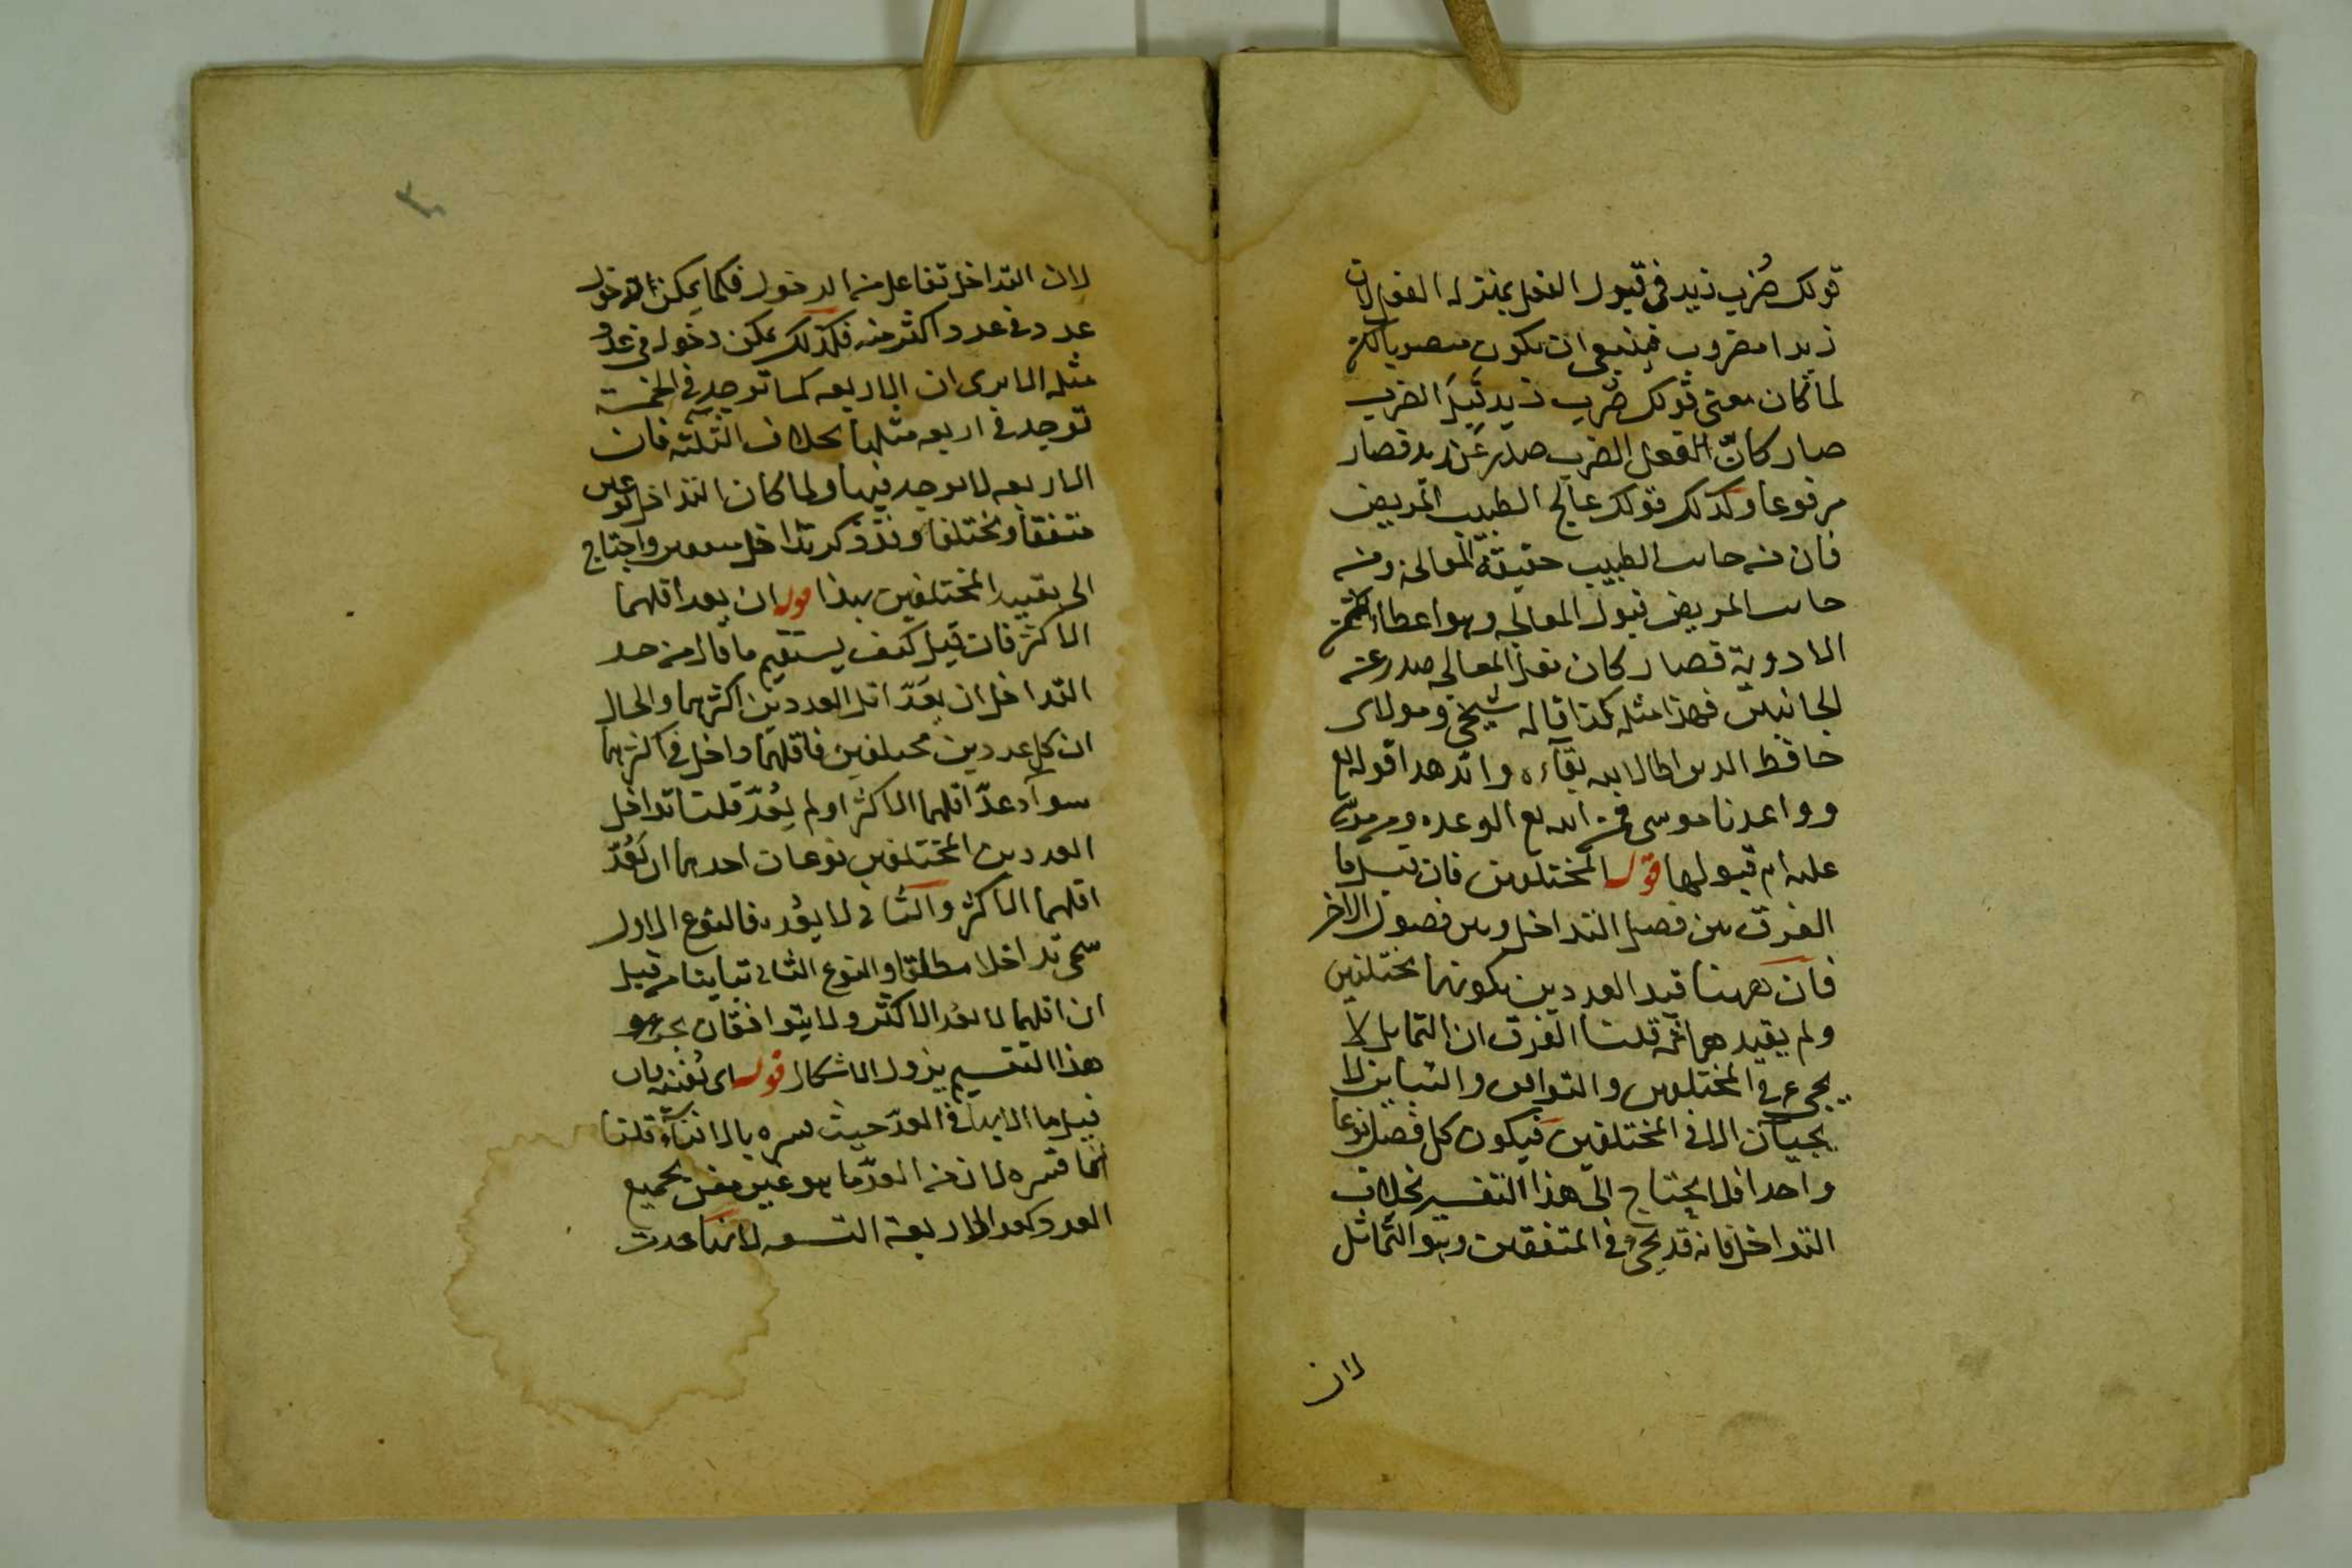 قولك ضُرب زيد في قبول الفعل بمنزلة الفعل لان
زيدا مضروب فينبغي ان يكون منصوبا لكن
لما كان معنى قولك ضُرب زيد قَبِلَ الضرب
صار كانّ الفعل الضرب صدر عن زيد فصار
مرفوعا وكذلك قولك عالج الطبيب المريض
فان من جانب الطبيب حقيقة المعالجة ومن
جانب المريض قبول المعالجة وهو اعطاء
الادوية فصار كان فعل المعالجة صدر عن
الجانبين فهذا مثله كذا قاله شيخي ومولاى
حافظ الدين اطال الله بقآءه وايد هدا قوله تع
وواعدنا موسى فمن الله تع الوعده ومن موسى
عليه ام قبولها قوله المختلفين فان قيل ما
الفرق بين فصل التداخل وبين فصول الاخر
فان ههنا قيد العددين بكونهما مختلفين
ولم يقيد هما ثمه قلنا الفرق ان التماثل لا
يجىء في المختلفين والتوافق والتباين لا
يجيئان الا في المختلفين فيكون كل فصل نوعا
واحدا فلا يحتاج الى هذا التفسير بخلاف
التداخل فانه قد يجىء في المتفقين وهو التماثل
لان
لان التداخل تفاعل من الدخول فكما يمكن دخول
عدد في عدد اكثر منه فكذلك يمكن دخوله في عدد
مثله الا يرى ان الاربعه كما توجد في الخمسة
توجد في اربعه مثلها بخلاف الثلثه فان
الاربعه لا يوجد فيها ولما كان التداخل نوعين
متفقا ومختلفا وقد ذكر تداخل واحتاج
الى تقييد المختلفين بهذا قوله ان يعد اقلهما
الاكثر فان قيل كيف يستقيم ما قال من حد
التداخل ان يَعدّ اقل العددين اكثرهما والحال
ان كل عددين مختلفين فاقلهما داخل في اكثرهما
سوآء عدّ اقلهما الاكثر او لم يُعدّ قلنا تداخل
العددين المختلفين نوعان احدهما ان يَعُدّ
اقلهما الاكثر والثانى لا يعُد فالنوع الاول
سمى تداخلا مطلقا والنوع الثانى تباينا من قبل
ان اقلهما لا يعد الاكثر ولا يتوافقان بجزء و
هذا التقسيم يزول الاشكال قوله اى يُفنيه فان
قيل ما الابهام في العدّ حيث فسره بالافناء قلنا
انما فسره لان من العدّ ما هو غير مفن بجميع
العدد كعد الاربعة التسعه لانها عدت